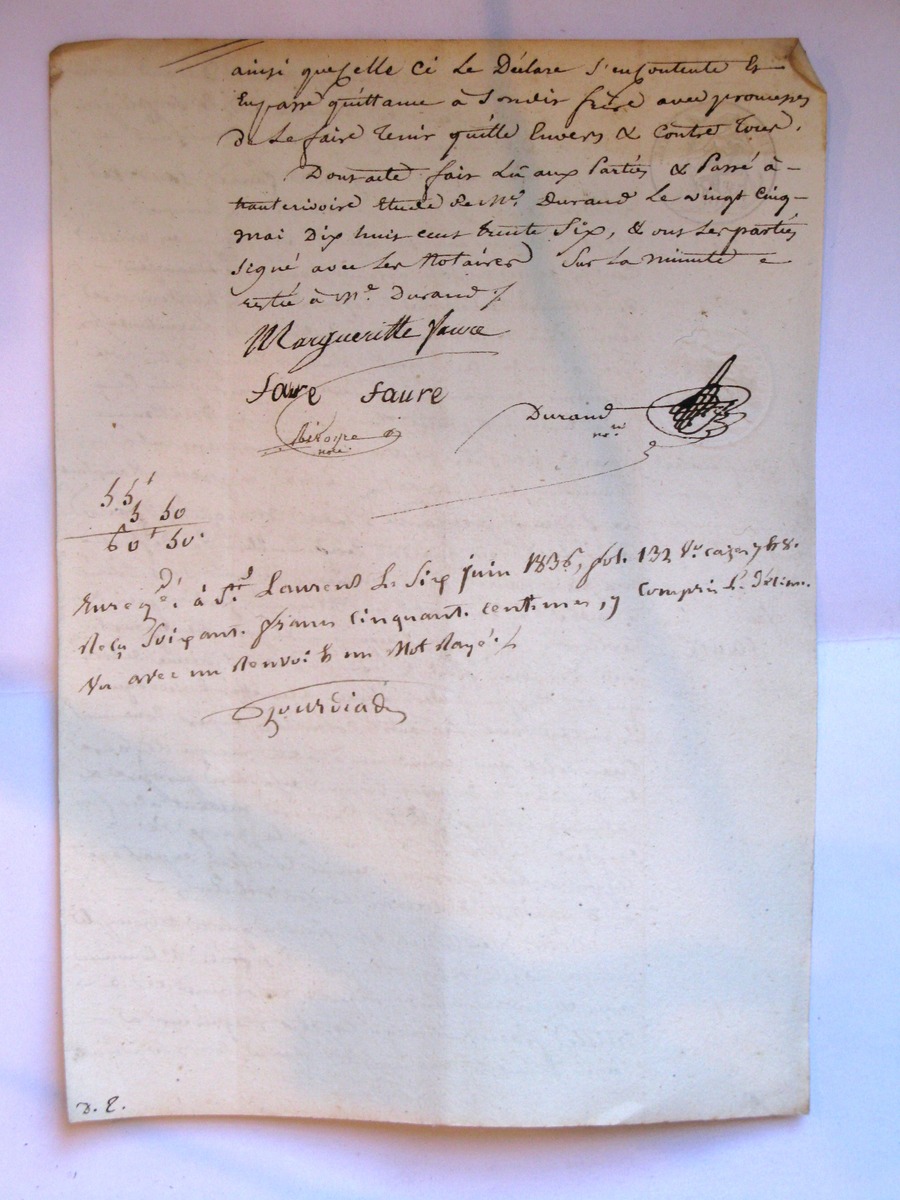 ainsi quelle ci Le Déclare s'encontente Et
En passe quittance à Sondit frère avec promesses
De Le faire tenir quitte Envers & Contre tous.
Dont acte fait Lû aux Parties & Passé à
hauterivoire Etude de Me. Durand Le vingt Cinq
mai Dix huit cent trente Six, & ont Les parties
Signé avec Les Notaires Sur La minute
restée à Me. Durand
Margueritte Faure
faure faure
Durand
nore
55f
5 50
60f 50
Enregé. à St. Laurent Le Six juin 1836, fol. 132 Vo. cases 7 & 8.
Reçu Soixante francs cinquante centimes, y Compris Le Décime.
Vu avec un Renvoi & un Mot Rayé
D. E.